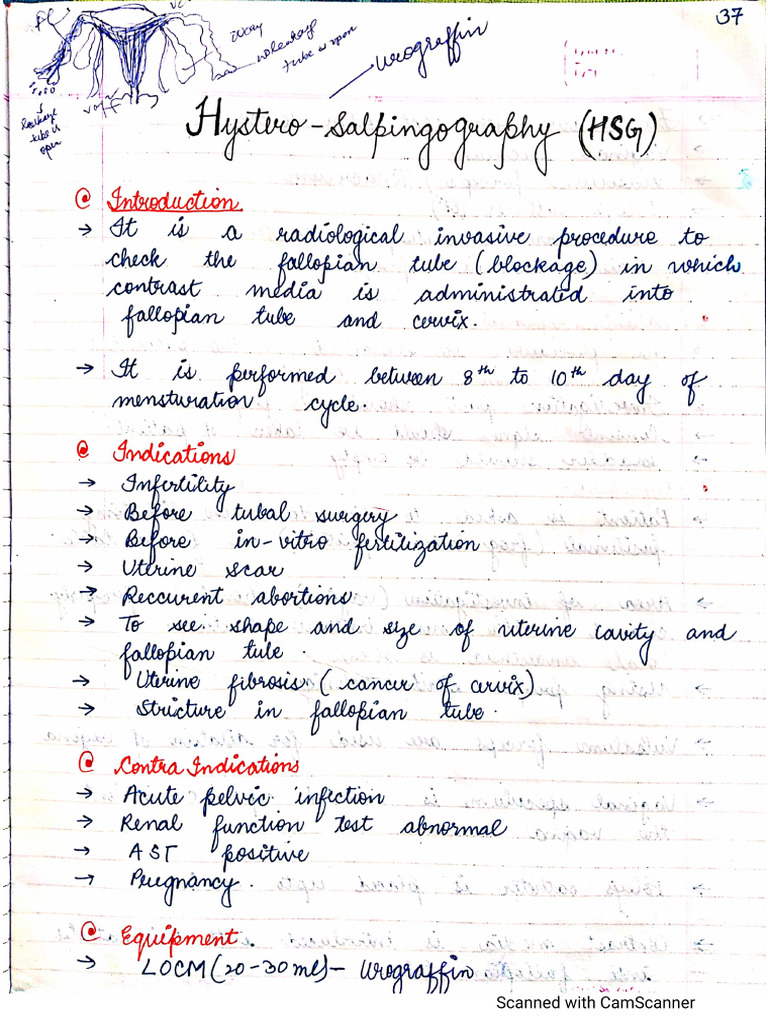 37
FL
ovary
no leakage
tube is open
Urograffin
leakage
tube is
open
Hystero-Salpingography (HSG)
Introduction
→ It is a radiological invasive procedure to
check the fallopian tube (blockage) in which
contrast media is administrated into
fallopian tube and cervix.
→ It is performed between 8th to 10th day of
mensturation cycle.
Indications
→ Infertility
→ Before tubal surgery
→ Before in-vitro fertilization
→ Uterine scar
→ Reccurent abortions
→ To see shape and size of uterine cavity and
fallopian tule.
→ Uterine fibrosis (cancer of cervix)
→ Structure in fallopian tube.
Contra Indications
→ Acute pelvic infection
→ Renal function test abnormal
→ AST positive
→ Pregnancy.
Equipment
→ LOCM (20-30 ml) - Urograffin
Scanned with CamScanner